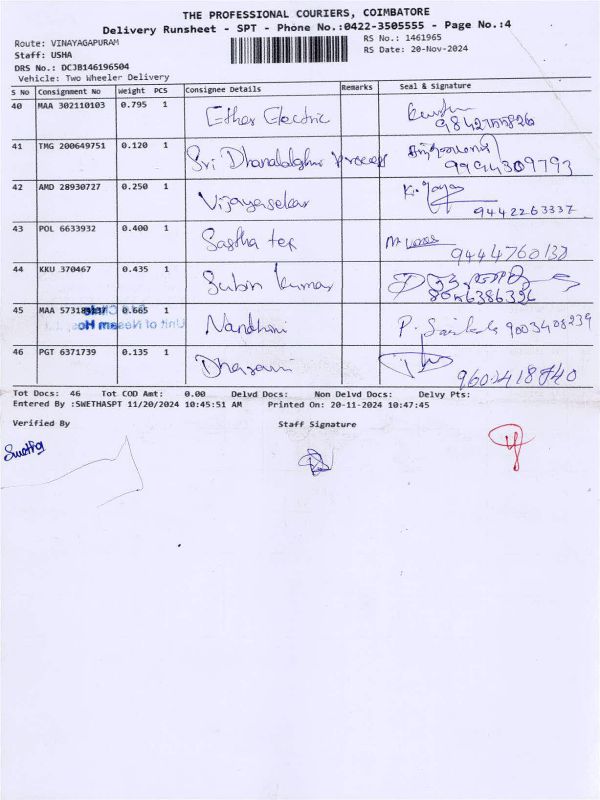 THE PROFESSIONAL COURIERS, COIMBATORE
Delivery Runsheet - SPT - Phone No.:0422-3505555 - Page No.:4
Route: VINAYAGAPURAM RS No.: 1461965
Staff: USHA RS Date: 20-Nov-2024
DRS No.: DCJB146196504
Vehicle: Two Wheeler Delivery
S No Consignment No Weight PCS Consignee Details Remarks Seal & Signature
40 MAA 302110103 0.795 1 Ether Electric
9842755826
41 TMG 200649751 0.120 1 Sri
9994309793
42 AMD 28930727 0.250 1 Vijayasekar K. Jaya
9442263337
43 POL 6633932 0.400 1 Sastha tex
9444760138
44 KKU 370467 0.435 1 Subin Kumar
8056386336
45 MAA 0.665 1 Nandhini P.
9003408239
46 PGT 6371739 0.135 1
Tot Docs: 46 Tot COD Amt: 0.00 Delvd Docs: Non Delvd Docs: Delvy Pts:
Entered By :SWETHASPT 11/20/2024 10:45:51 AM Printed On: 20-11-2024 10:47:45
Verified By Staff Signature
Swetha